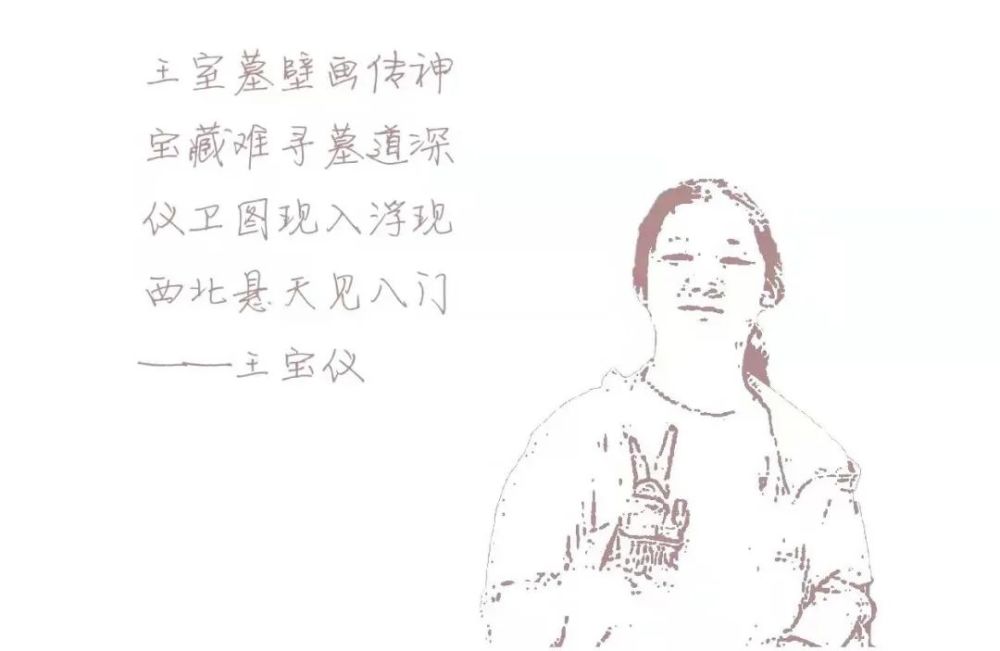 王室墓壁画传神
宝藏难寻墓道深
仪卫图现入浮现
西北悬天见入门
——王宝仪